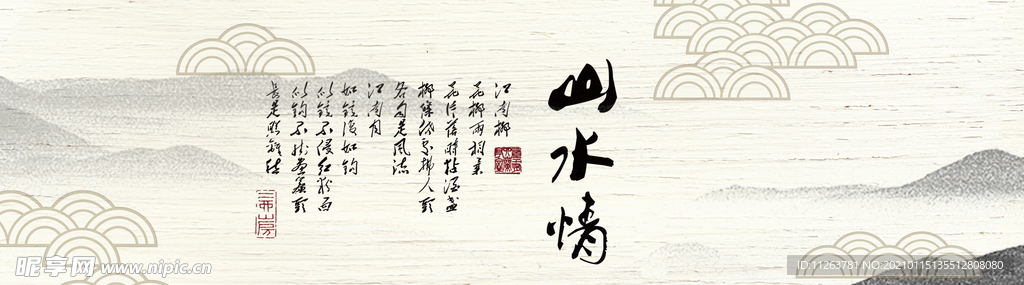 山水情
江南柳
花柳两相柔
花片落时黏酒盏
柳条低处拂人头
各自是风流
江南月
如镜复如钩
似镜不侵红粉面
似钩不挂画帘头
长是照离愁
昵享网 www.nipic.cn
ID:11263781 NO:20210115135512808080